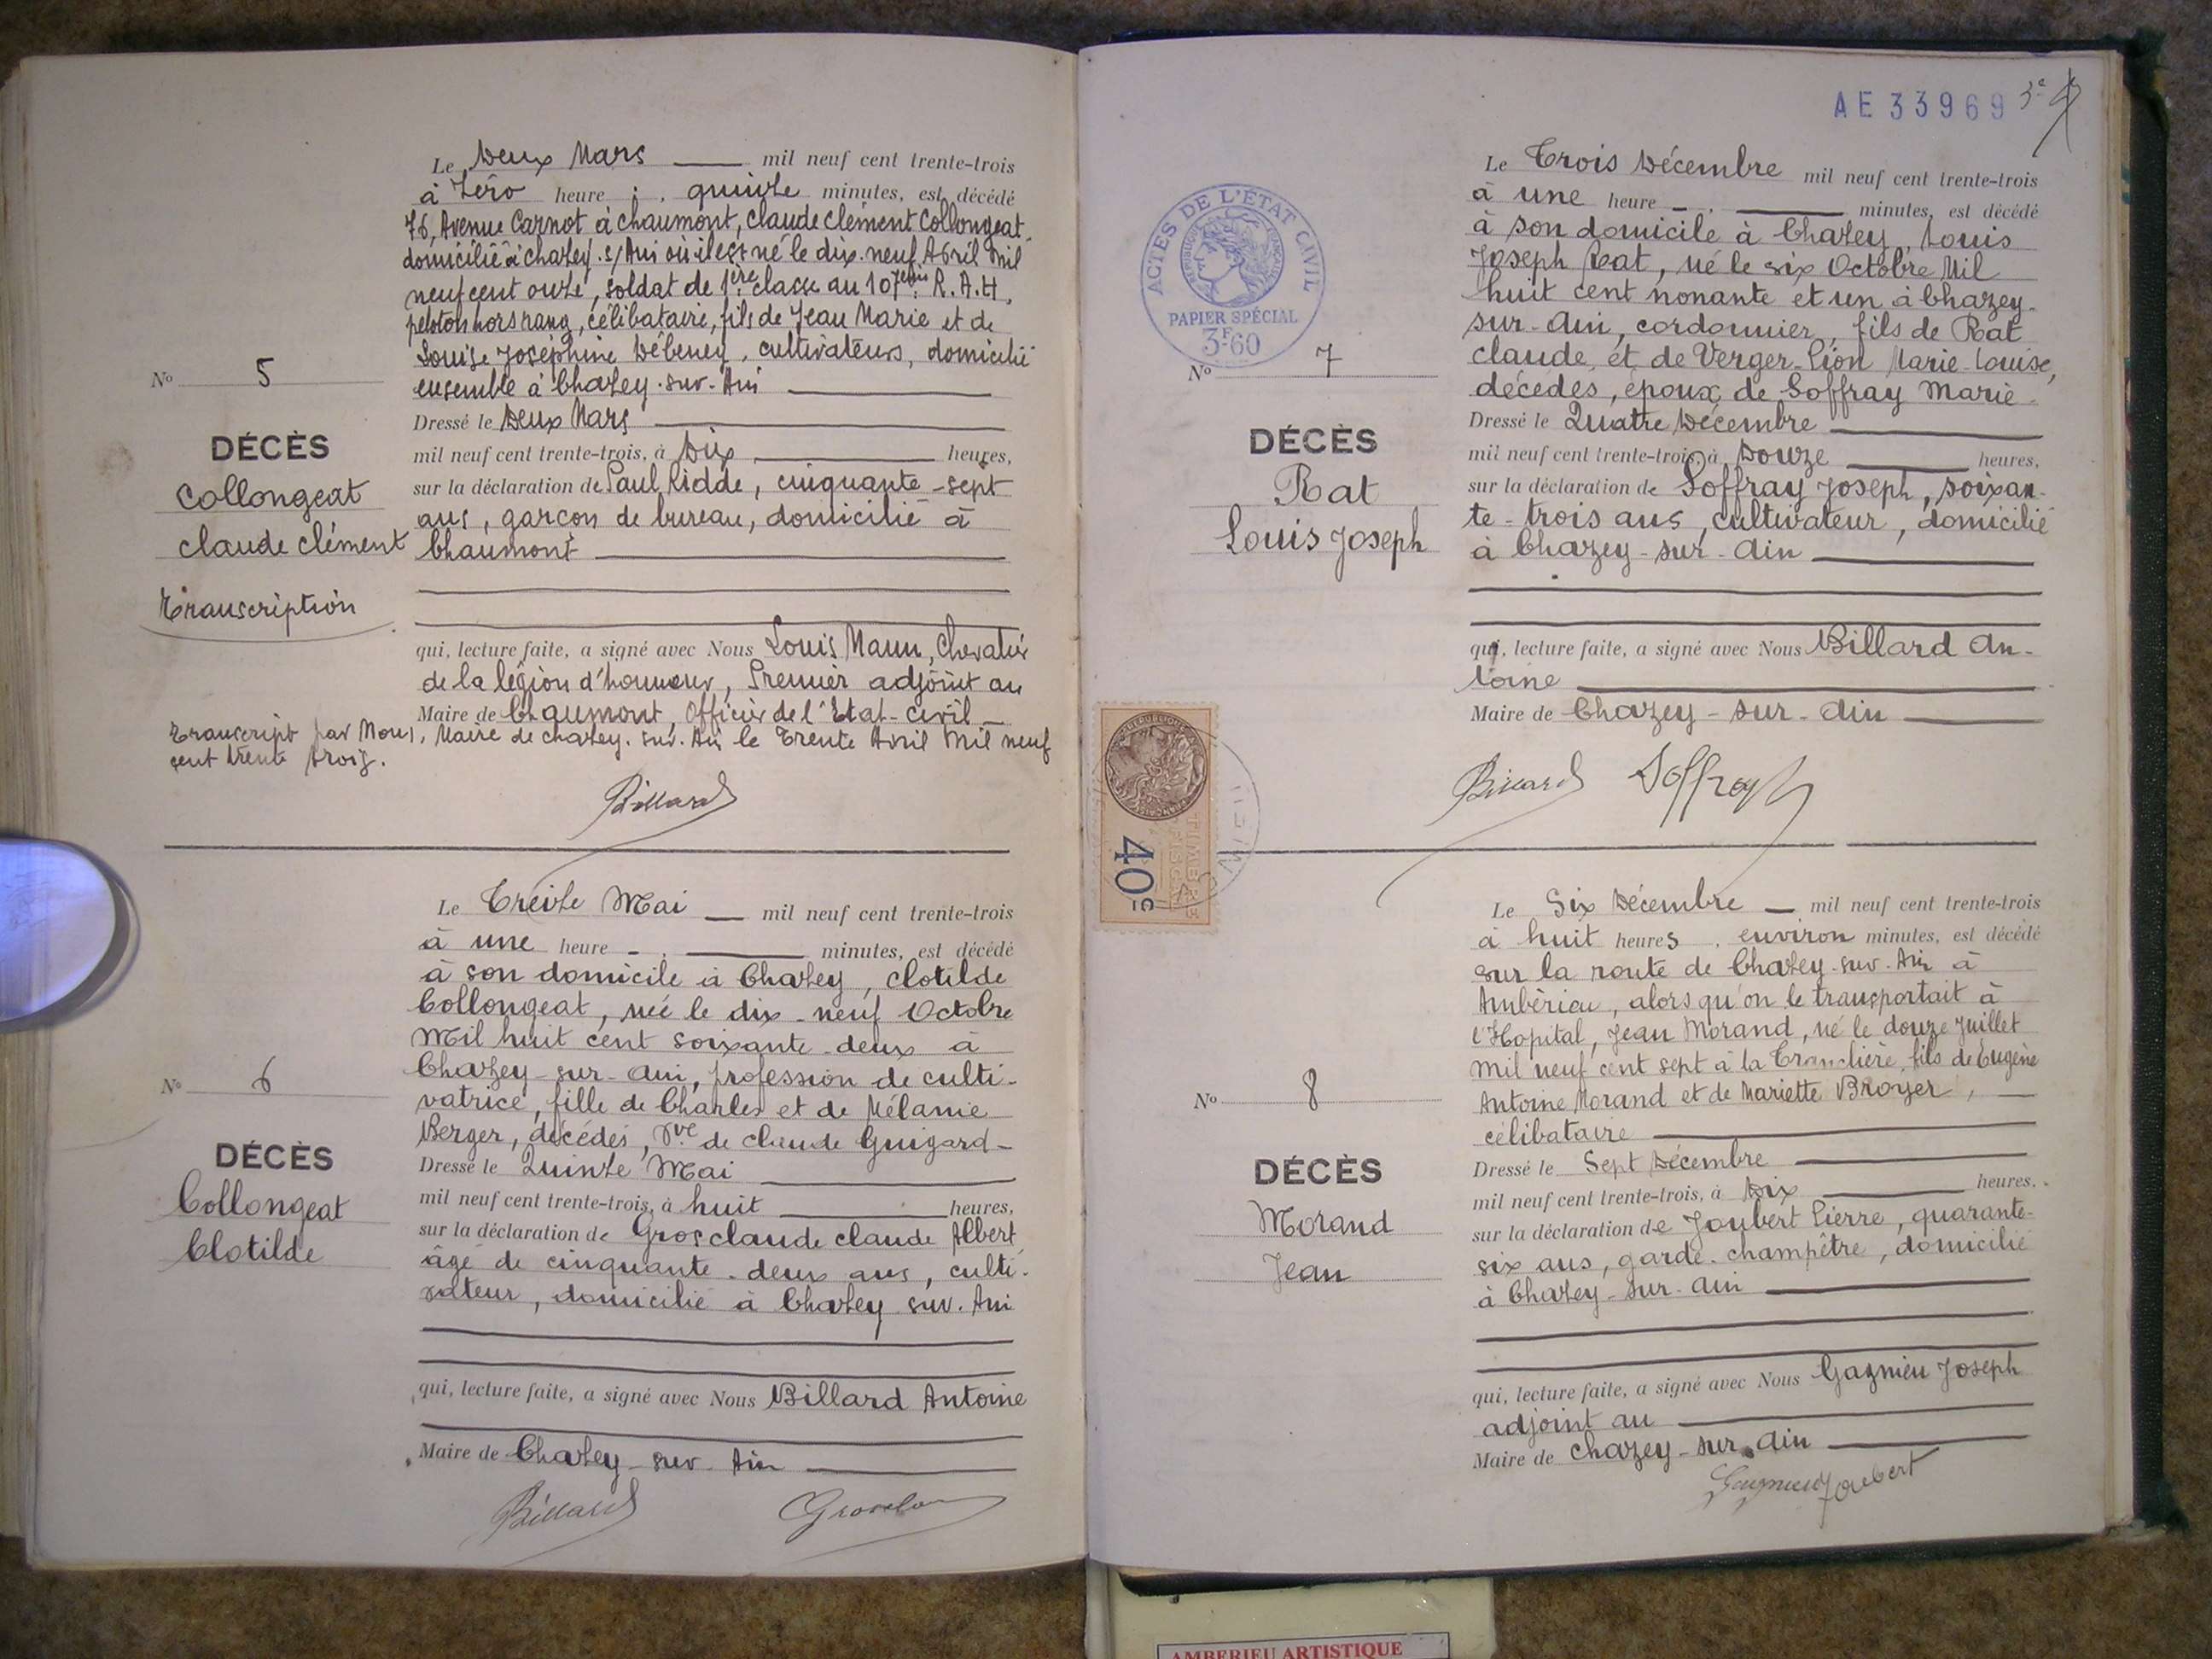 Le Deux Mars mil neuf cent trente-trois
à Zéro heure, quinze minutes, est décédé
76, Avenue Carnot à Chaumont, Claude Clément Collongeat
domicilié à Chazey s/Ain où il est né le dix-neuf Avril Mil
neuf cent onze, soldat de 1ère classe au 107ème R.A.H,
peloton hors rang, célibataire, fils de Jean Marie et de
Louise Joséphine Débeney, cultivateurs, domicilié
ensemble à Chazey-sur-Ain
Dressé le Deux Mars
mil neuf cent trente-trois, à Dix heures,
sur la déclaration de Paul Ridde, cinquante-sept
ans, garçon de bureau, domicilié à
Chaumont
qui, lecture faite, a signé avec Nous Louis Maun, Chevalier
de la légion d'honneur, Premier adjoint au
Maire de Chaumont, Officier de l'Etat-civil
Transcript par Nous, Maire de Chazey-sur-Ain le Trente Avril Mil neuf
cent trente trois.
Billard
No 5
DÉCÈS
Collongeat
Claude Clément
Transcription
Le Treize Mai mil neuf cent trente-trois
à une heure minutes, est décédé
à son domicile à Chazey, Clotilde
Collongeat, née le dix-neuf Octobre
Mil huit cent soixante-deux à
Chazey-sur-Ain, profession de culti-
vatrice, fille de Charles et de Mélanie
Berger, décédés, Vve de Claude Guigard
Dressé le Quinze Mai
mil neuf cent trente-trois, à huit heures,
sur la déclaration de Grosclaude Claude Albert
âgé de cinquante-deux ans, culti-
vateur, domicilié à Chazey-sur-Ain
qui, lecture faite, a signé avec Nous Billard Antoine
Maire de Chazey-sur-Ain
Billard
No 6
DÉCÈS
Collongeat
Clotilde
AE 33969
ACTES DE L'ÉTAT CIVIL
RÉPUBLIQUE FRANÇAISE
PAPIER SPÉCIAL
3F60
Le Trois Décembre mil neuf cent trente-trois
à une heure minutes, est décédé
à son domicile à Chazey, Louis
Joseph Rat, né le six Octobre Mil
huit cent nonante et un à Chazey-
sur-Ain, cordonnier, fils de Rat
Claude et de Verger-Lion Marie-Louise,
décédés, époux de Soffray Marie
Dressé le Quatre Décembre
mil neuf cent trente-trois, à Douze heures,
sur la déclaration de Soffray Joseph, soixan-
te-trois ans, cultivateur, domicilié
à Chazey-sur-Ain
qui, lecture faite, a signé avec Nous Billard An-
toine
Maire de Chazey-sur-Ain
Billard Soffray
No 7
DÉCÈS
Rat
Louis Joseph
TIMBRE
FISCAL
40c
Le Six Décembre mil neuf cent trente-trois
à huit heures, environ minutes, est décédé
sur la route de Chazey-sur-Ain à
Ambérieu, alors qu'on le transportait à
l'Hopital, Jean Morand, né le douze Juillet
mil neuf cent sept à la Tranclière, fils de Eugène
Antoine Morand et de Mariette Broyer,
célibataire
Dressé le Sept Décembre
mil neuf cent trente-trois, à Dix heures,
sur la déclaration de Joubert Pierre, quarante-
six ans, garde-champêtre, domicilié
à Chazey-sur-Ain
qui, lecture faite, a signé avec Nous Gagnieu Joseph
adjoint au
Maire de Chazey-sur-Ain
Gagnieu Joubert
No 8
DÉCÈS
Morand
Jean
AMBERIEU ARTISTIQUE